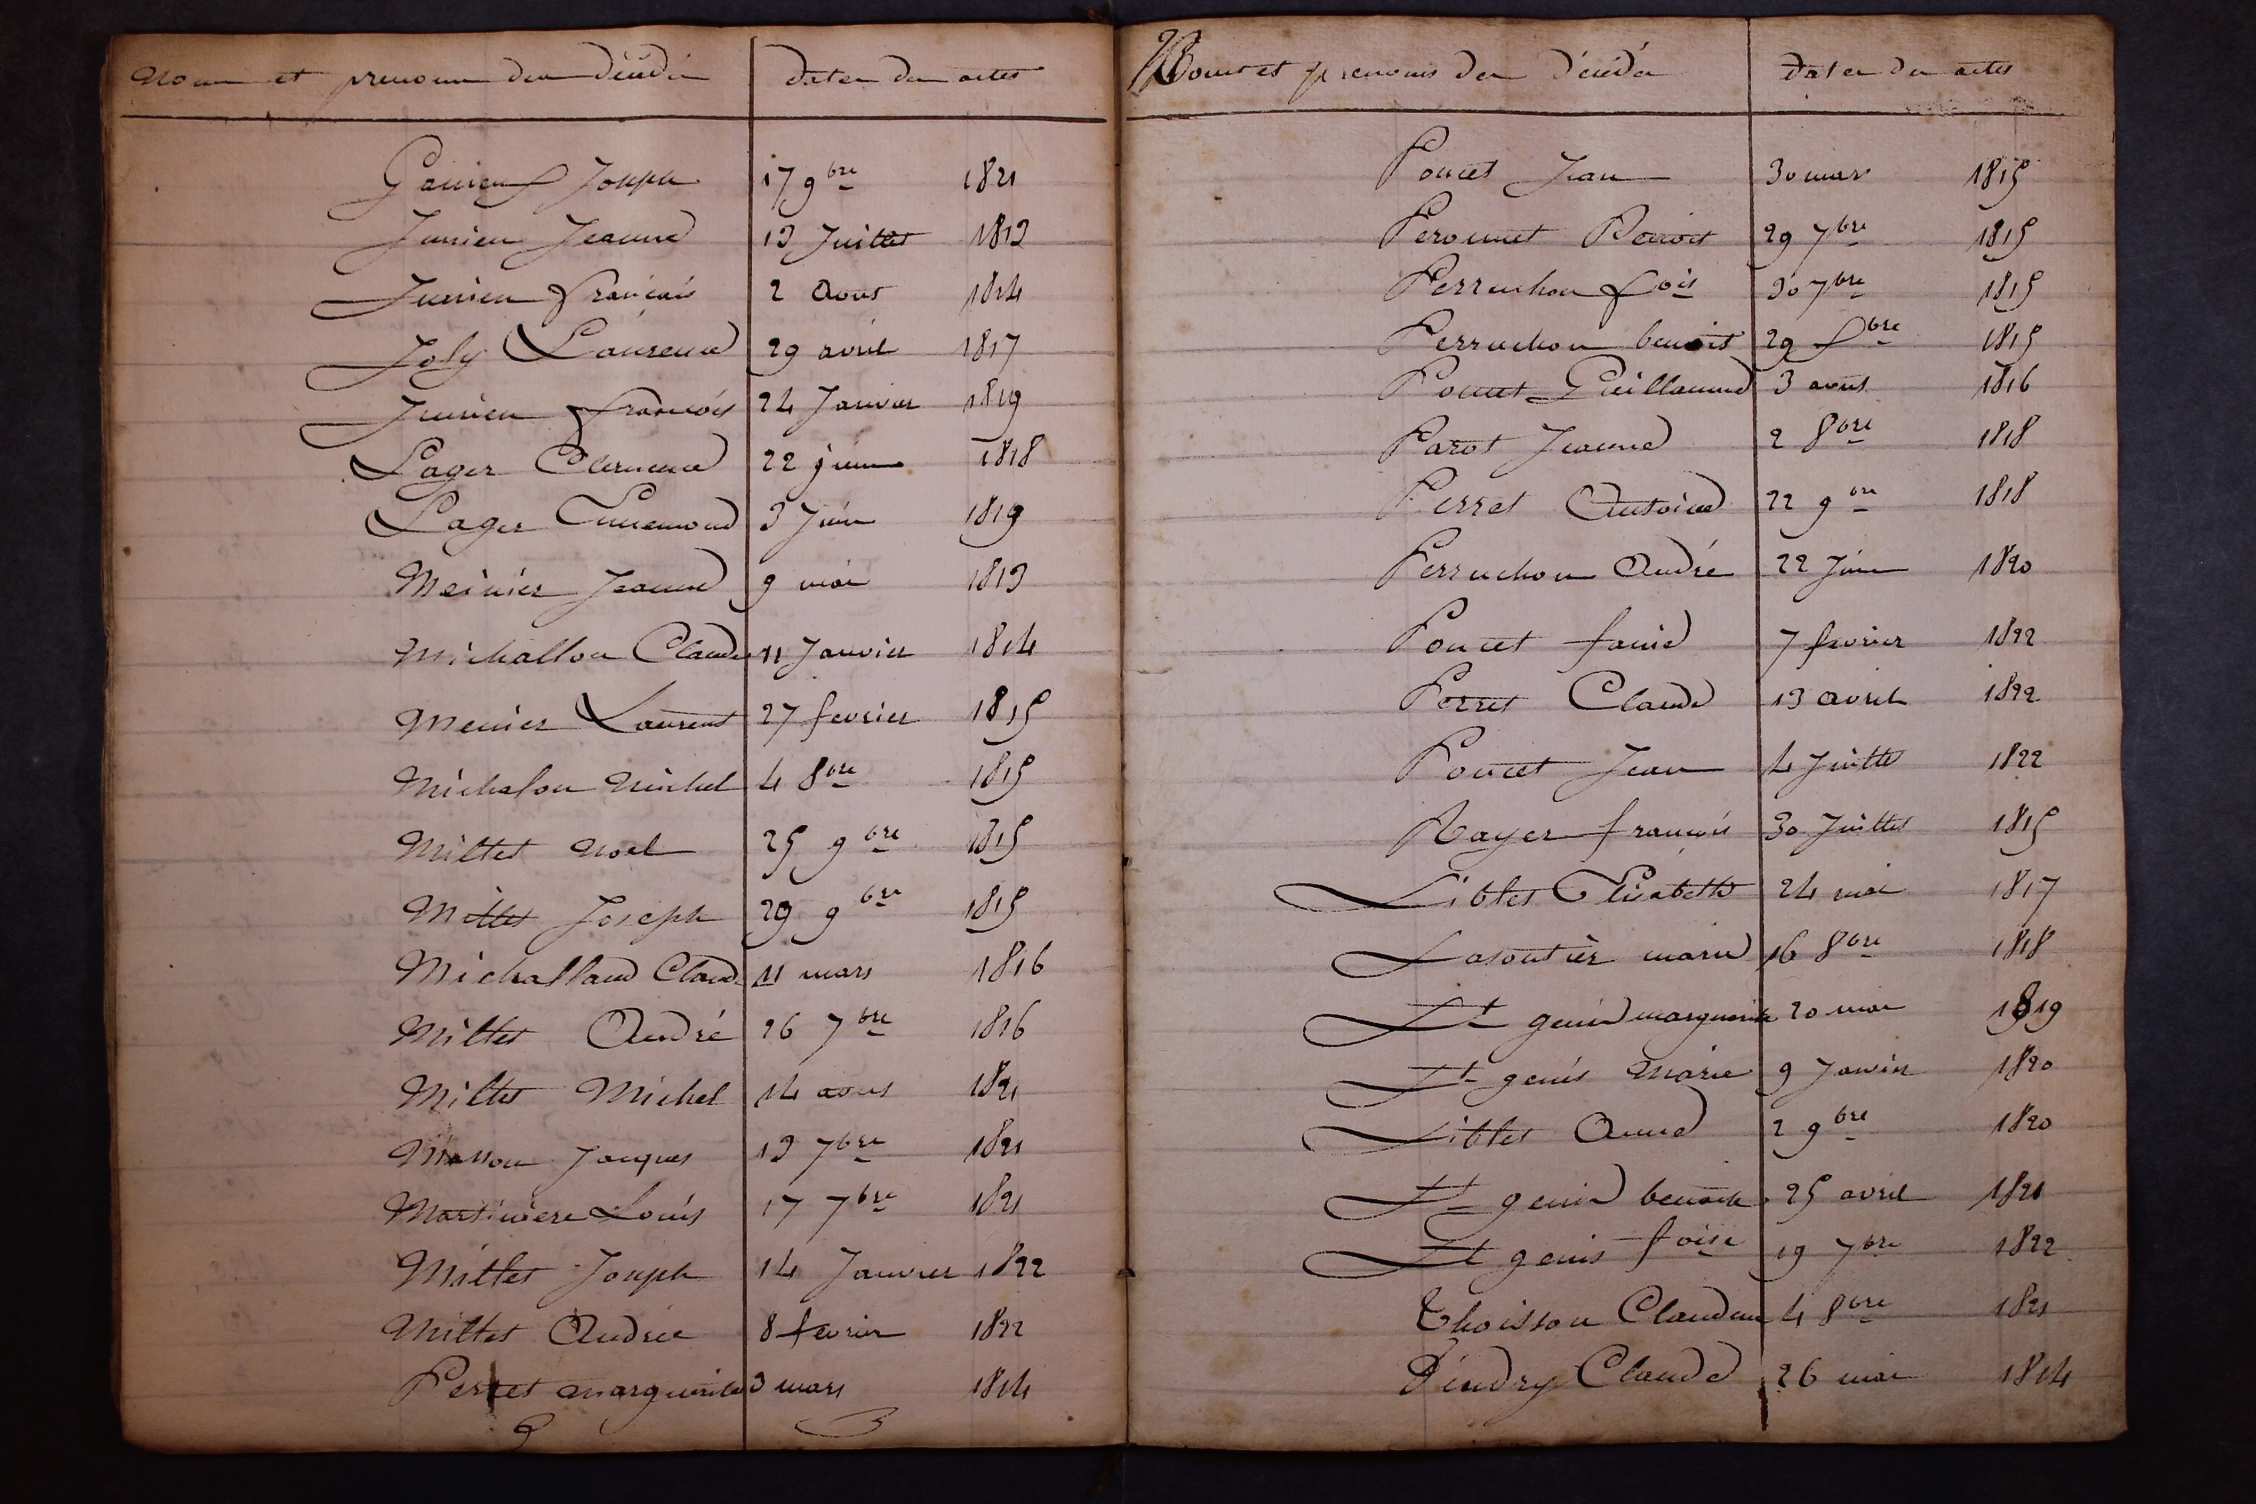 Noms et prenoms des décédés dates des actes
Joseph 17 9bre 1821
Junien Jeanne 13 Juillet 1813
Junien françois 2 Aout 1814
Joly Laurence 29 avril 1817
Junien françois 24 Janvier 1819
Lager Clemence 22 juin 1818
Lager 3 Juin 1819
Meinier Jeanne 9 mai 1813
Michallon Claude 11 Janvier 1814
Menier Laurent 27 fevrier 1815
Michalon Michel 4 8bre 1815
Millet Noel 25 9bre 1815
Millet Joseph 29 9bre 1815
Michalland Claude 11 mars 1816
Millet André 26 7bre 1816
Millet Michel 14 aout 1821
Masson Jacques 13 7bre 1821
Martiniere Louis 17 7bre 1821
Millet Joseph 14 Janvier 1822
Millet Andrée 8 fevrier 1822
Perret marguerite 3 mars 1814
Noms et prenoms des décédés dates des actes
Poncet Jean 30 mars 1815
Peronnet Benoit 29 7bre 1815
Perruchon fois 30 7bre 1815
Perruchon benoit 29 bre 1815
Poncet Guillaume 3 aout 1816
Parot Jeanne 2 8bre 1818
Perret Antoine 22 9bre 1818
Perruchon André 22 Juin 1820
Poncet 7 fevrier 1822
Perret Claude 13 avril 1822
Poncet Jean 4 Juillet 1822
Rayer françois 30 Juillet 1815
Siblet Elisabeth 24 mai 1817
Sasoutier marie 16 8bre 1818
St genis marguerite 20 mai 1819
St genis Marie 9 Janvier 1820
Siblet Anne 2 9bre 1820
St genis benoite 25 avril 1821
St genis foise 19 7bre 1822
Thoisson Claudine 4 8bre 1821
Vindry Claude 26 mai 1814